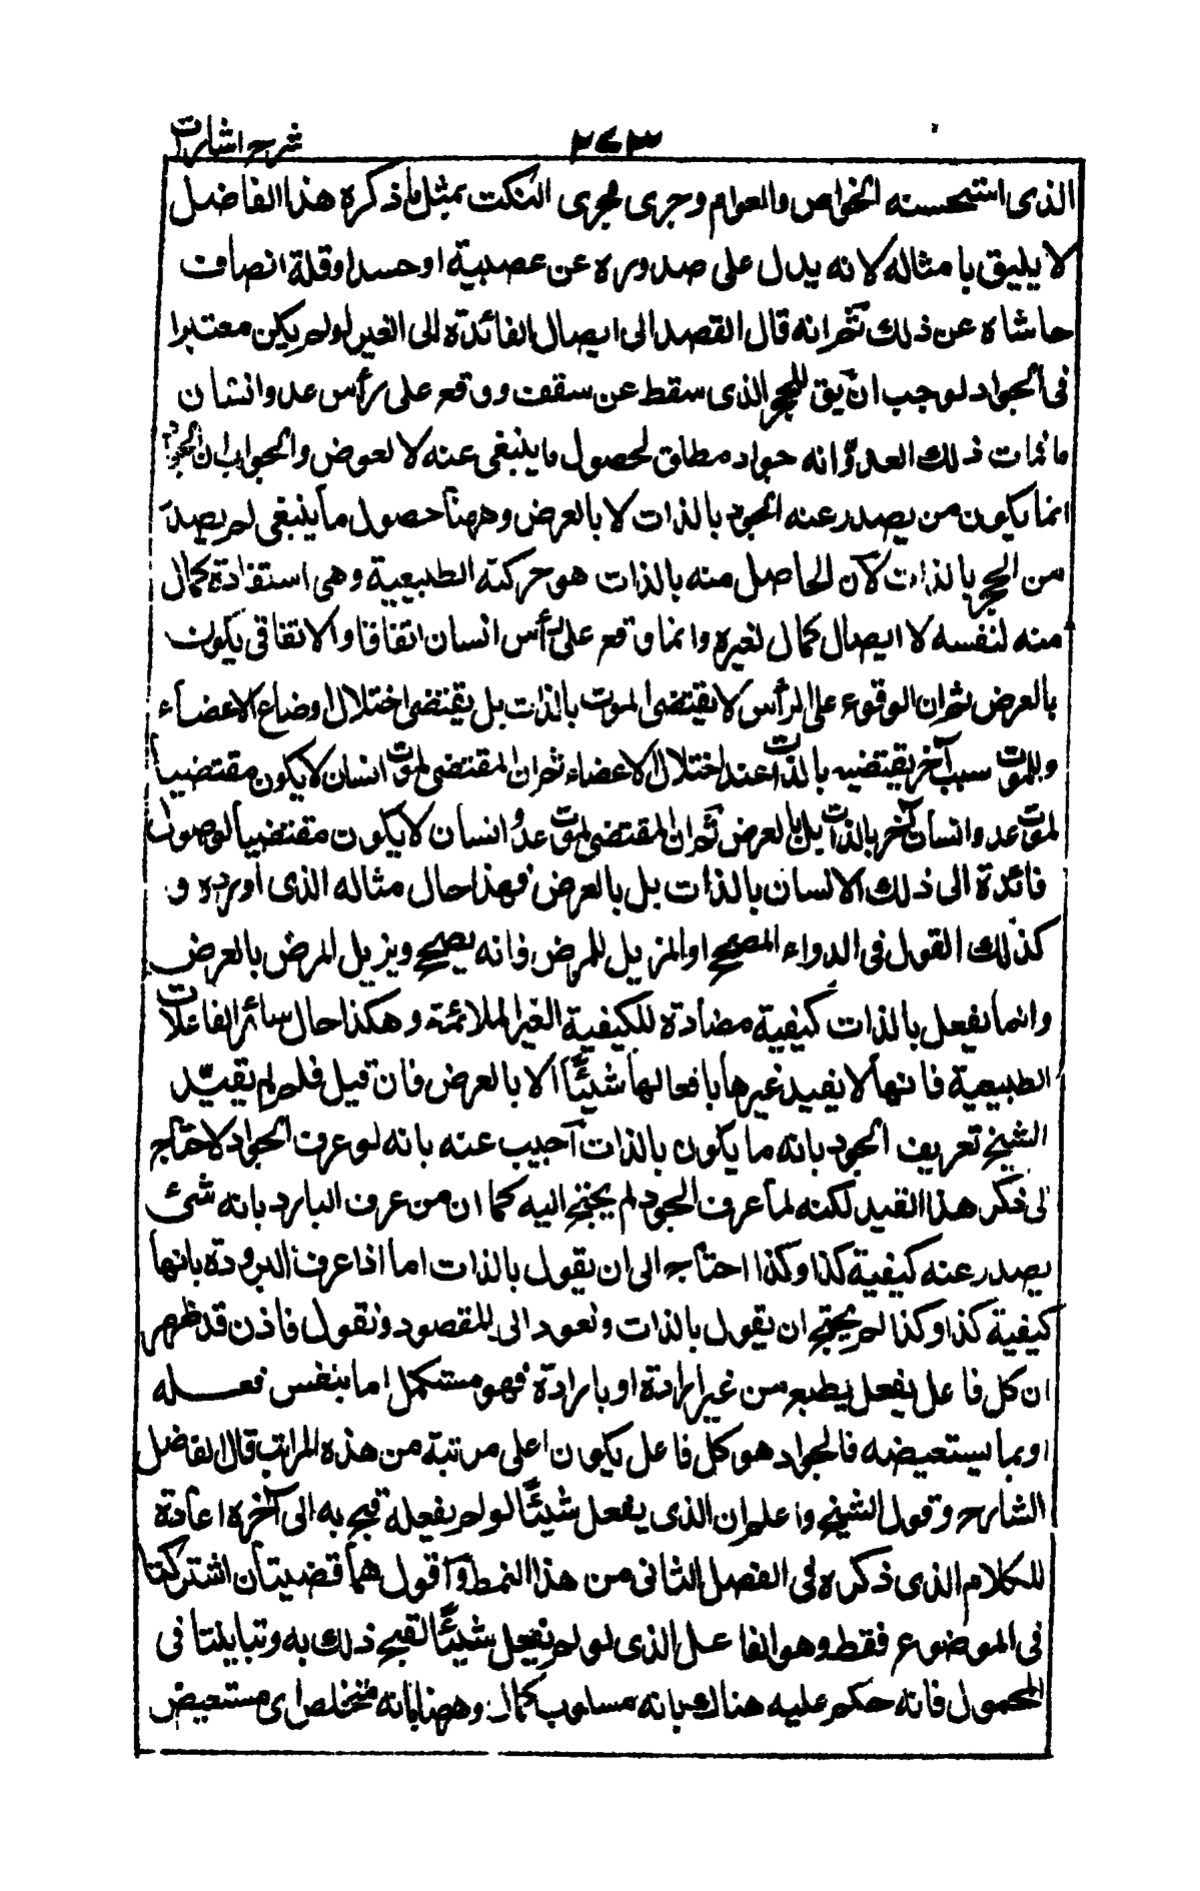 شرح اشارات
٢٧٣
الذى استحسنه الخواص والعوام وجرى مجرى النكت بمثل ما ذكره هذا الفاضل
لا يليق بامثاله لانه يدل على صدوره عن عصبية او حسد او قلة انصاف
حاشاه عن ذلك ثم انه قال القصد الى ايصال الفائدة الى الغير لو لم يكن معتبرا
فى الجواد لوجب ان يق للحجر الذى سقط عن سقف ووقع على رأس عدو انسان
ما فمات ذلك العدو انه جواد مطلق لحصول ما ينبغى عنه لا لعوض والجواب ان الجواد
انما يكون من يصدر عنه الجود بالذات لا بالعرض وههنا حصول ما ينبغى لم يصدر
من الحجر بالذات لان الحاصل منه بالذات هو حركته الطبيعية وهى استفادة كمال
منه لنفسه لا ايصال كمال لغيره وانما وقع على رأس انسان اتفاقا والاتفاقى يكون
بالعرض ثم ان الوقوع على الرأس لا يقتضى الموت بالذات بل يقتضى اختلال اوضاع الاعضاء
وللموت سبب آخر يقتضيه بالذات عند اختلال الاعضاء ثم ان المقتضى لموت انسان لا يكون مقتضيا
لموت عدو انسان آخر بالذات بل بالعرض ثم ان المقتضى لموت عدو انسان لا يكون مقتضيا لوصول
فائدة الى ذلك الانسان بالذات بل بالعرض فهذا حال مثاله الذى اورده و
كذلك القول فى الدواء المصحح او المزيل للمرض فانه يصحح ويزيل المرض بالعرض
وانما يفعل بالذات كيفية مضادة للكيفية الغير الملائمة وهكذا حال سائر الفاعلات
الطبيعية فانها لا يفيد غيرها بافعالها شيئا الا بالعرض فان قيل فلم لم يقيد
الشيخ تعريف الجود بانه ما يكون بالذات اجيب عنه بانه لو عرف الجواد لاحتاج
الى ذكر هذا القيد لكنه لما عرف الجود لم يحتج اليه كما ان من عرف البارد بانه شئ
يصدر عنه كيفية كذا وكذا احتاج الى ان يقول بالذات اما اذا عرف البرودة بانها
كيفية كذا وكذا لم يحتج ان يقول بالذات ونعود الى المقصود ونقول فاذن قد ظهر
ان كل فاعل يفعل بطبع من غير ارادة او بارادة فهو مستكمل اما بنفس فعله
او بما يستعيضه فالجواد هو كل فاعل يكون اعلى مرتبة من هذه المراتب قال الفاضل
الشارح وقول الشيخ واعلم ان الذى يفعل شيئا لو لم يفعله قبح به الى آخره اعادة
للكلام الذى ذكره فى الفصل الثانى من هذا النمط واقول هما قضيتان اشتركتا
فى الموضوع فقط وهو الفاعل الذى لو لم يفعل شيئا لقبح ذلك به وتباينتا فى
المحمول فانه حكم عليه هناك بانه مسلوب كمال وههنا بانه متخلص اى مستعيض